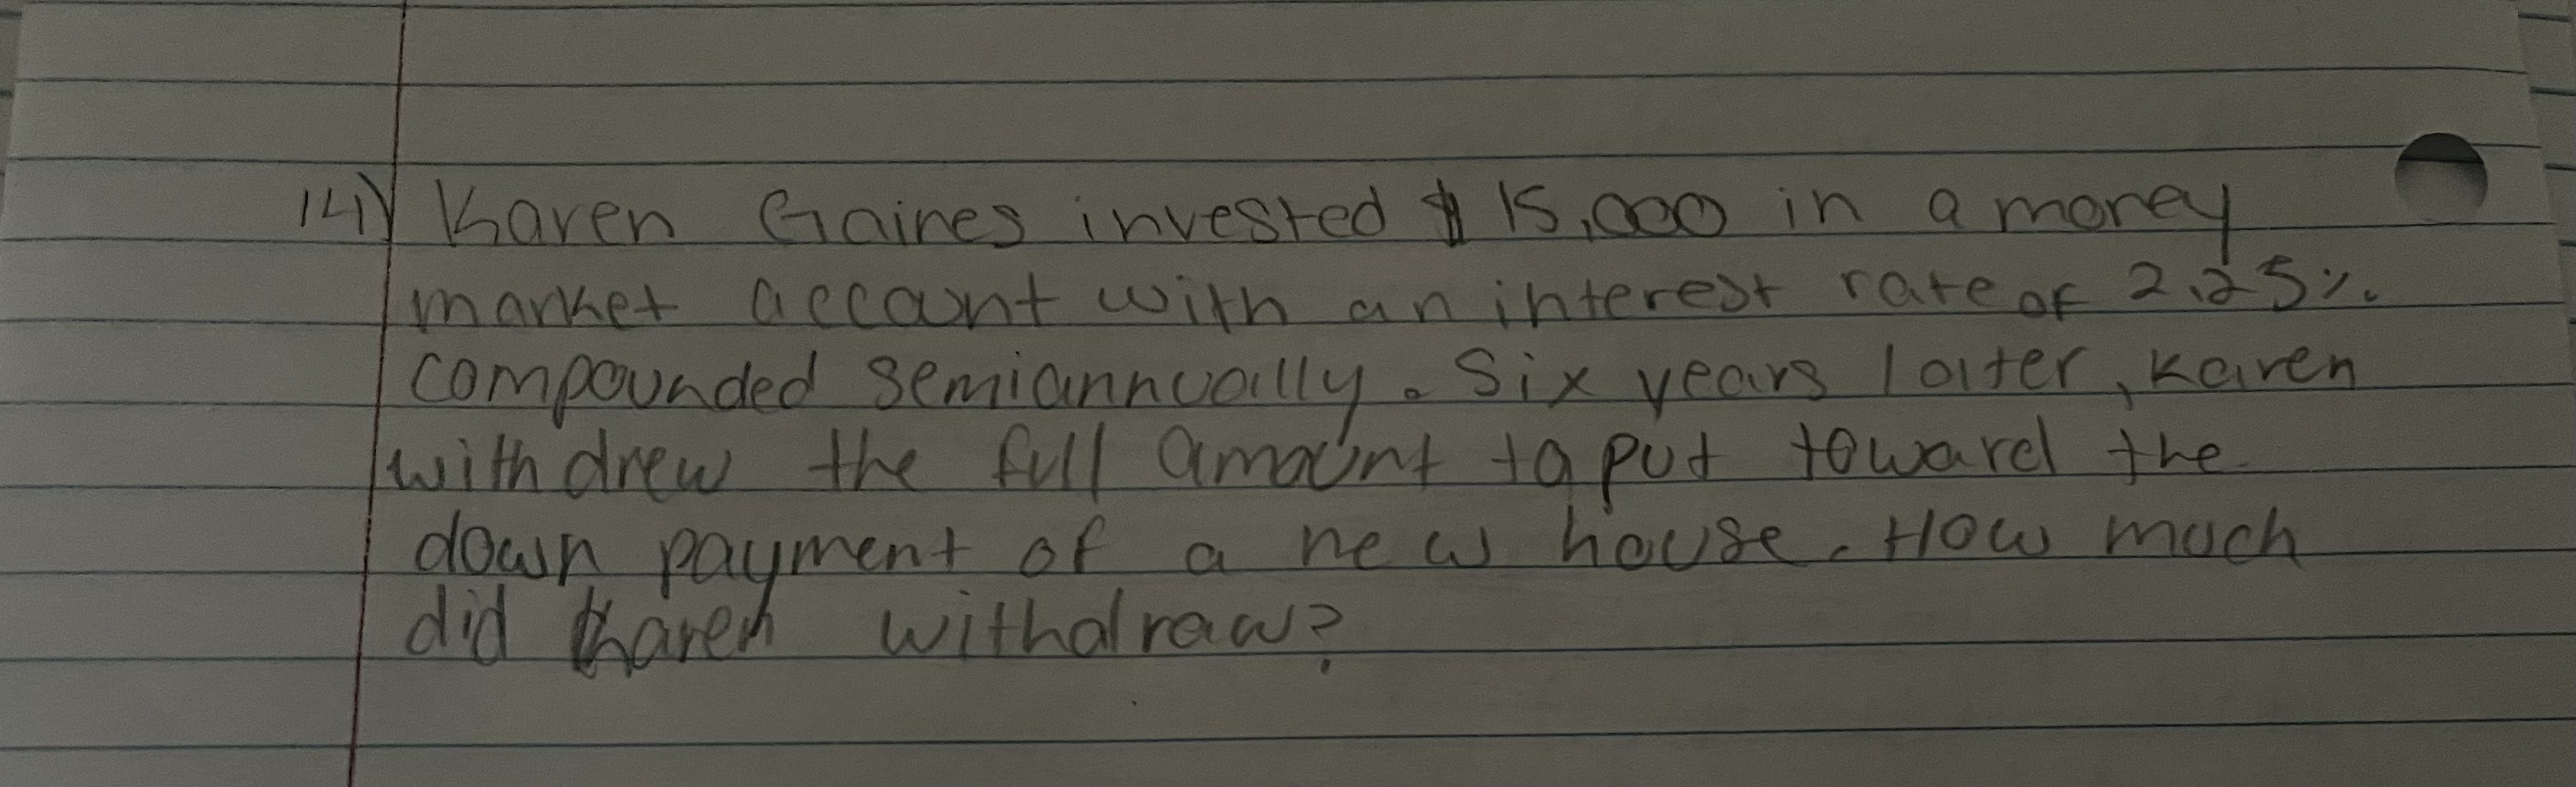 14) Karen Gaines invested $15,000 in a money
market account with an interest rate of 2.25%
compounded semiannually. Six years later, Karen
withdrew the full amount to put toward the
down payment of a new house. How much
did Karen withdraw?